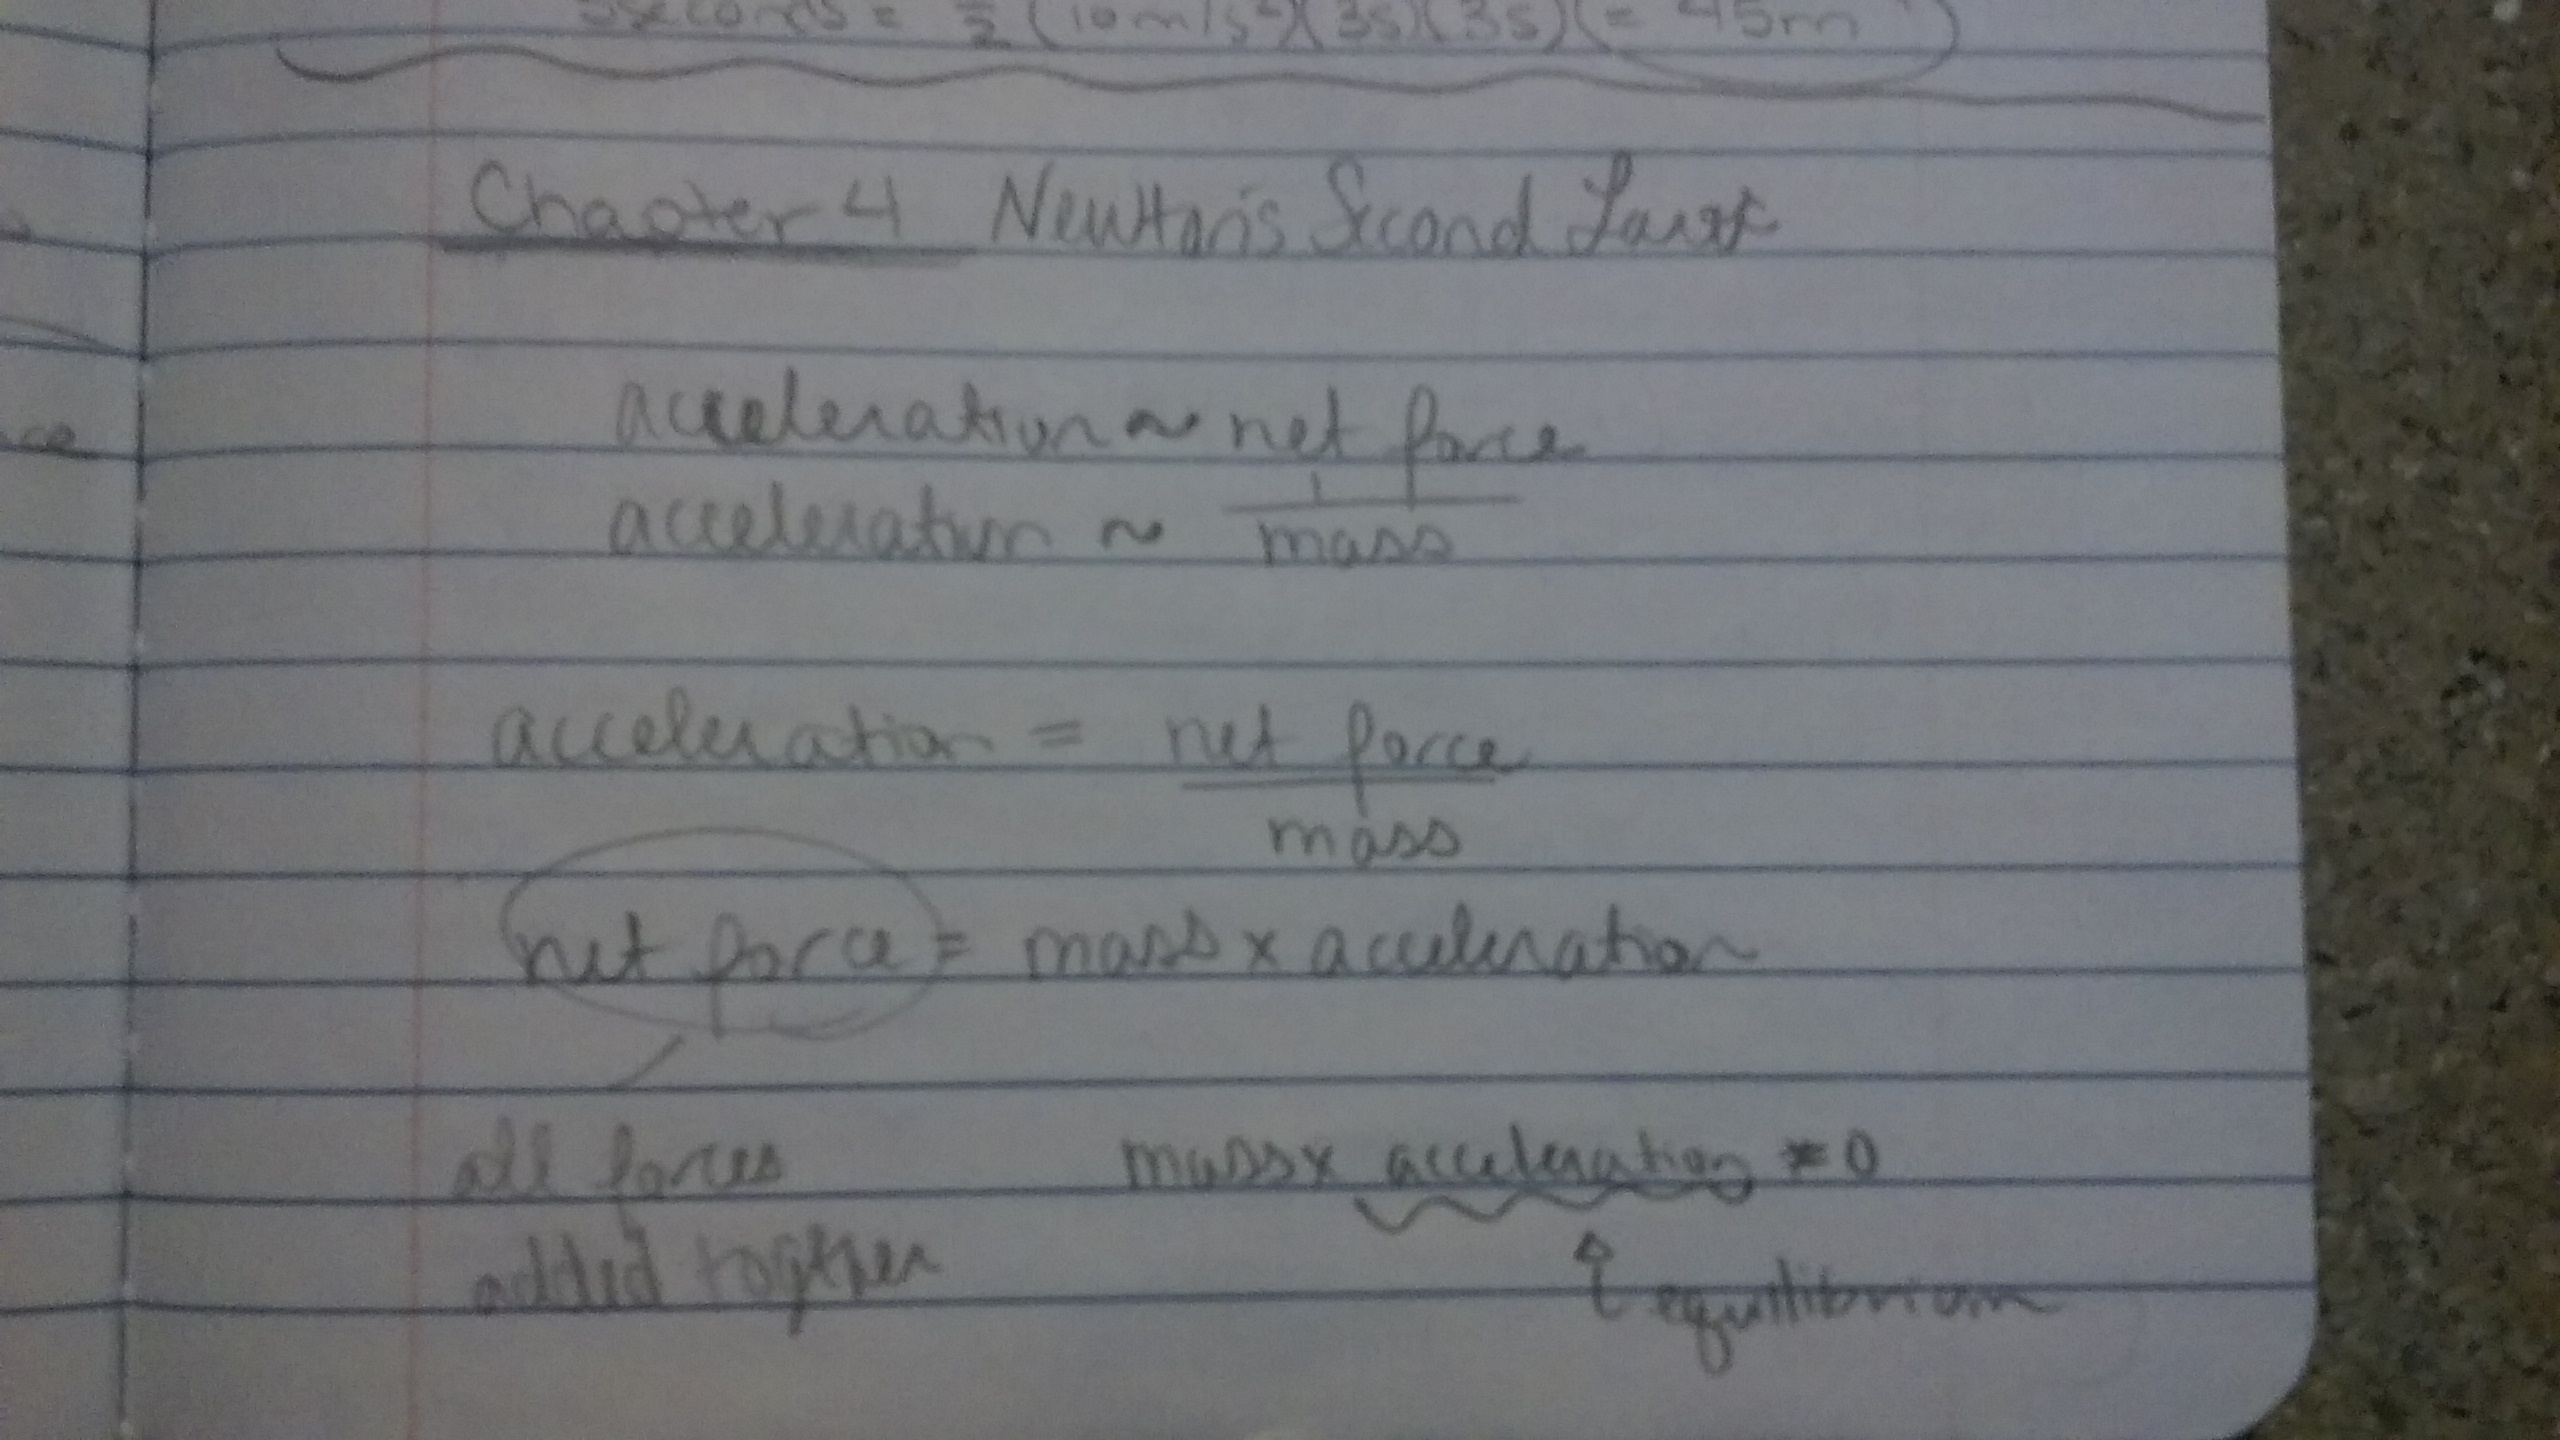 3seconds = 1/2 (10m/s²)(3s)(3s) (= 45m)
Chapter 4 Newton's Second Law
acceleration ~ net force
acceleration ~ 1/mass
acceleration = net force
mass
net force = mass x acceleration
all forces mass x acceleration = 0
added together equilibrium